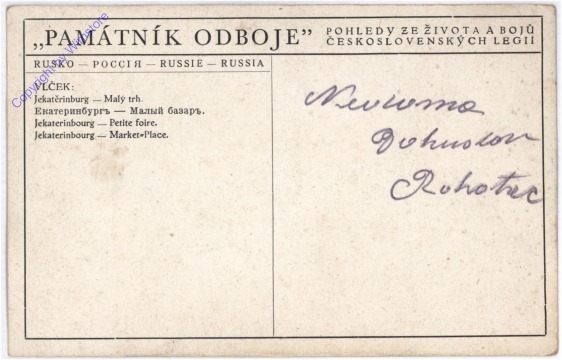 „PAMÁTNÍK ODBOJE”
POHLEDY ZE ŽIVOTA A BOJŮ
ČESKOSLOVENSKÝCH LEGIÍ
RUSKO — РОССІЯ — RUSSIE — RUSSIA
VLČEK:
Jekatěrinburg — Malý trh.
Екатеринбургъ — Малый базаръ.
Jekaterinbourg — Petite foire.
Jekaterinbourg — Market-Place.
Copyright by
Rohatec